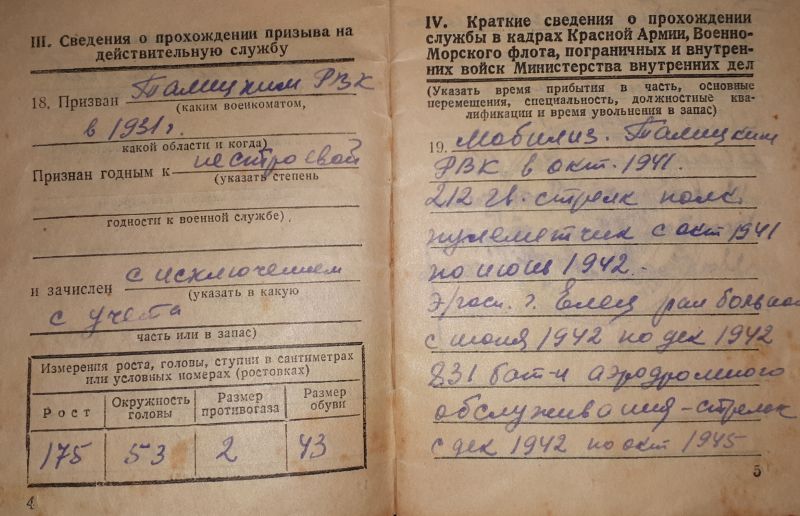 III. Сведения о прохождении призыва на
действительную службу
18. Призван Талицким РВК
(каким военкоматом,
в 1931 г.
какой области и когда)
Признан годным к нестроевой
(указать степень
годности к военной службе)
и зачислен с исключением
(указать в какую
с учета
часть или в запас)
Измерения роста, головы, ступни в сантиметрах
или условных номерах (ростовках)
Рост
Окружность головы
Размер противогаза
Размер обуви
175 53 2 43
4
IV. Краткие сведения о прохождении
службы в кадрах Красной Армии, Военно-
Морского флота, пограничных и внутрен-
них войск Министерства внутренних дел
(Указать время прибытия в часть, основные
перемещения, специальность, должностные ква-
лификации и время увольнения в запас)
19. Мобилиз. Талицким
РВК в окт. 1941.
212 гв. стрелк полк
пулеметчик с окт 1941
по июнь 1942.
Э/госп. г. Елец ран больной
с июня 1942 по дек 1942
831 бат-н аэродромного
обслуживания - стрелок
с дек 1942 по окт 1945
5